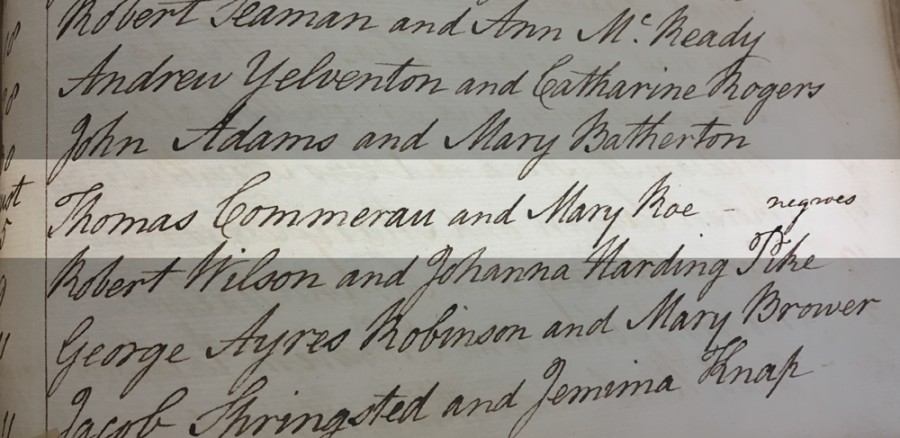 8 Robert Seaman and Ann Mc. Ready
Andrew Yelventon and Catharine Rogers
John Adams and Mary Batherton
Thomas Commerau and Mary Roe - negroes
Robert Wilson and Johanna Harding Pike
George Ayres Robinson and Mary Brower
Jacob Thringsted and Jemima Knap